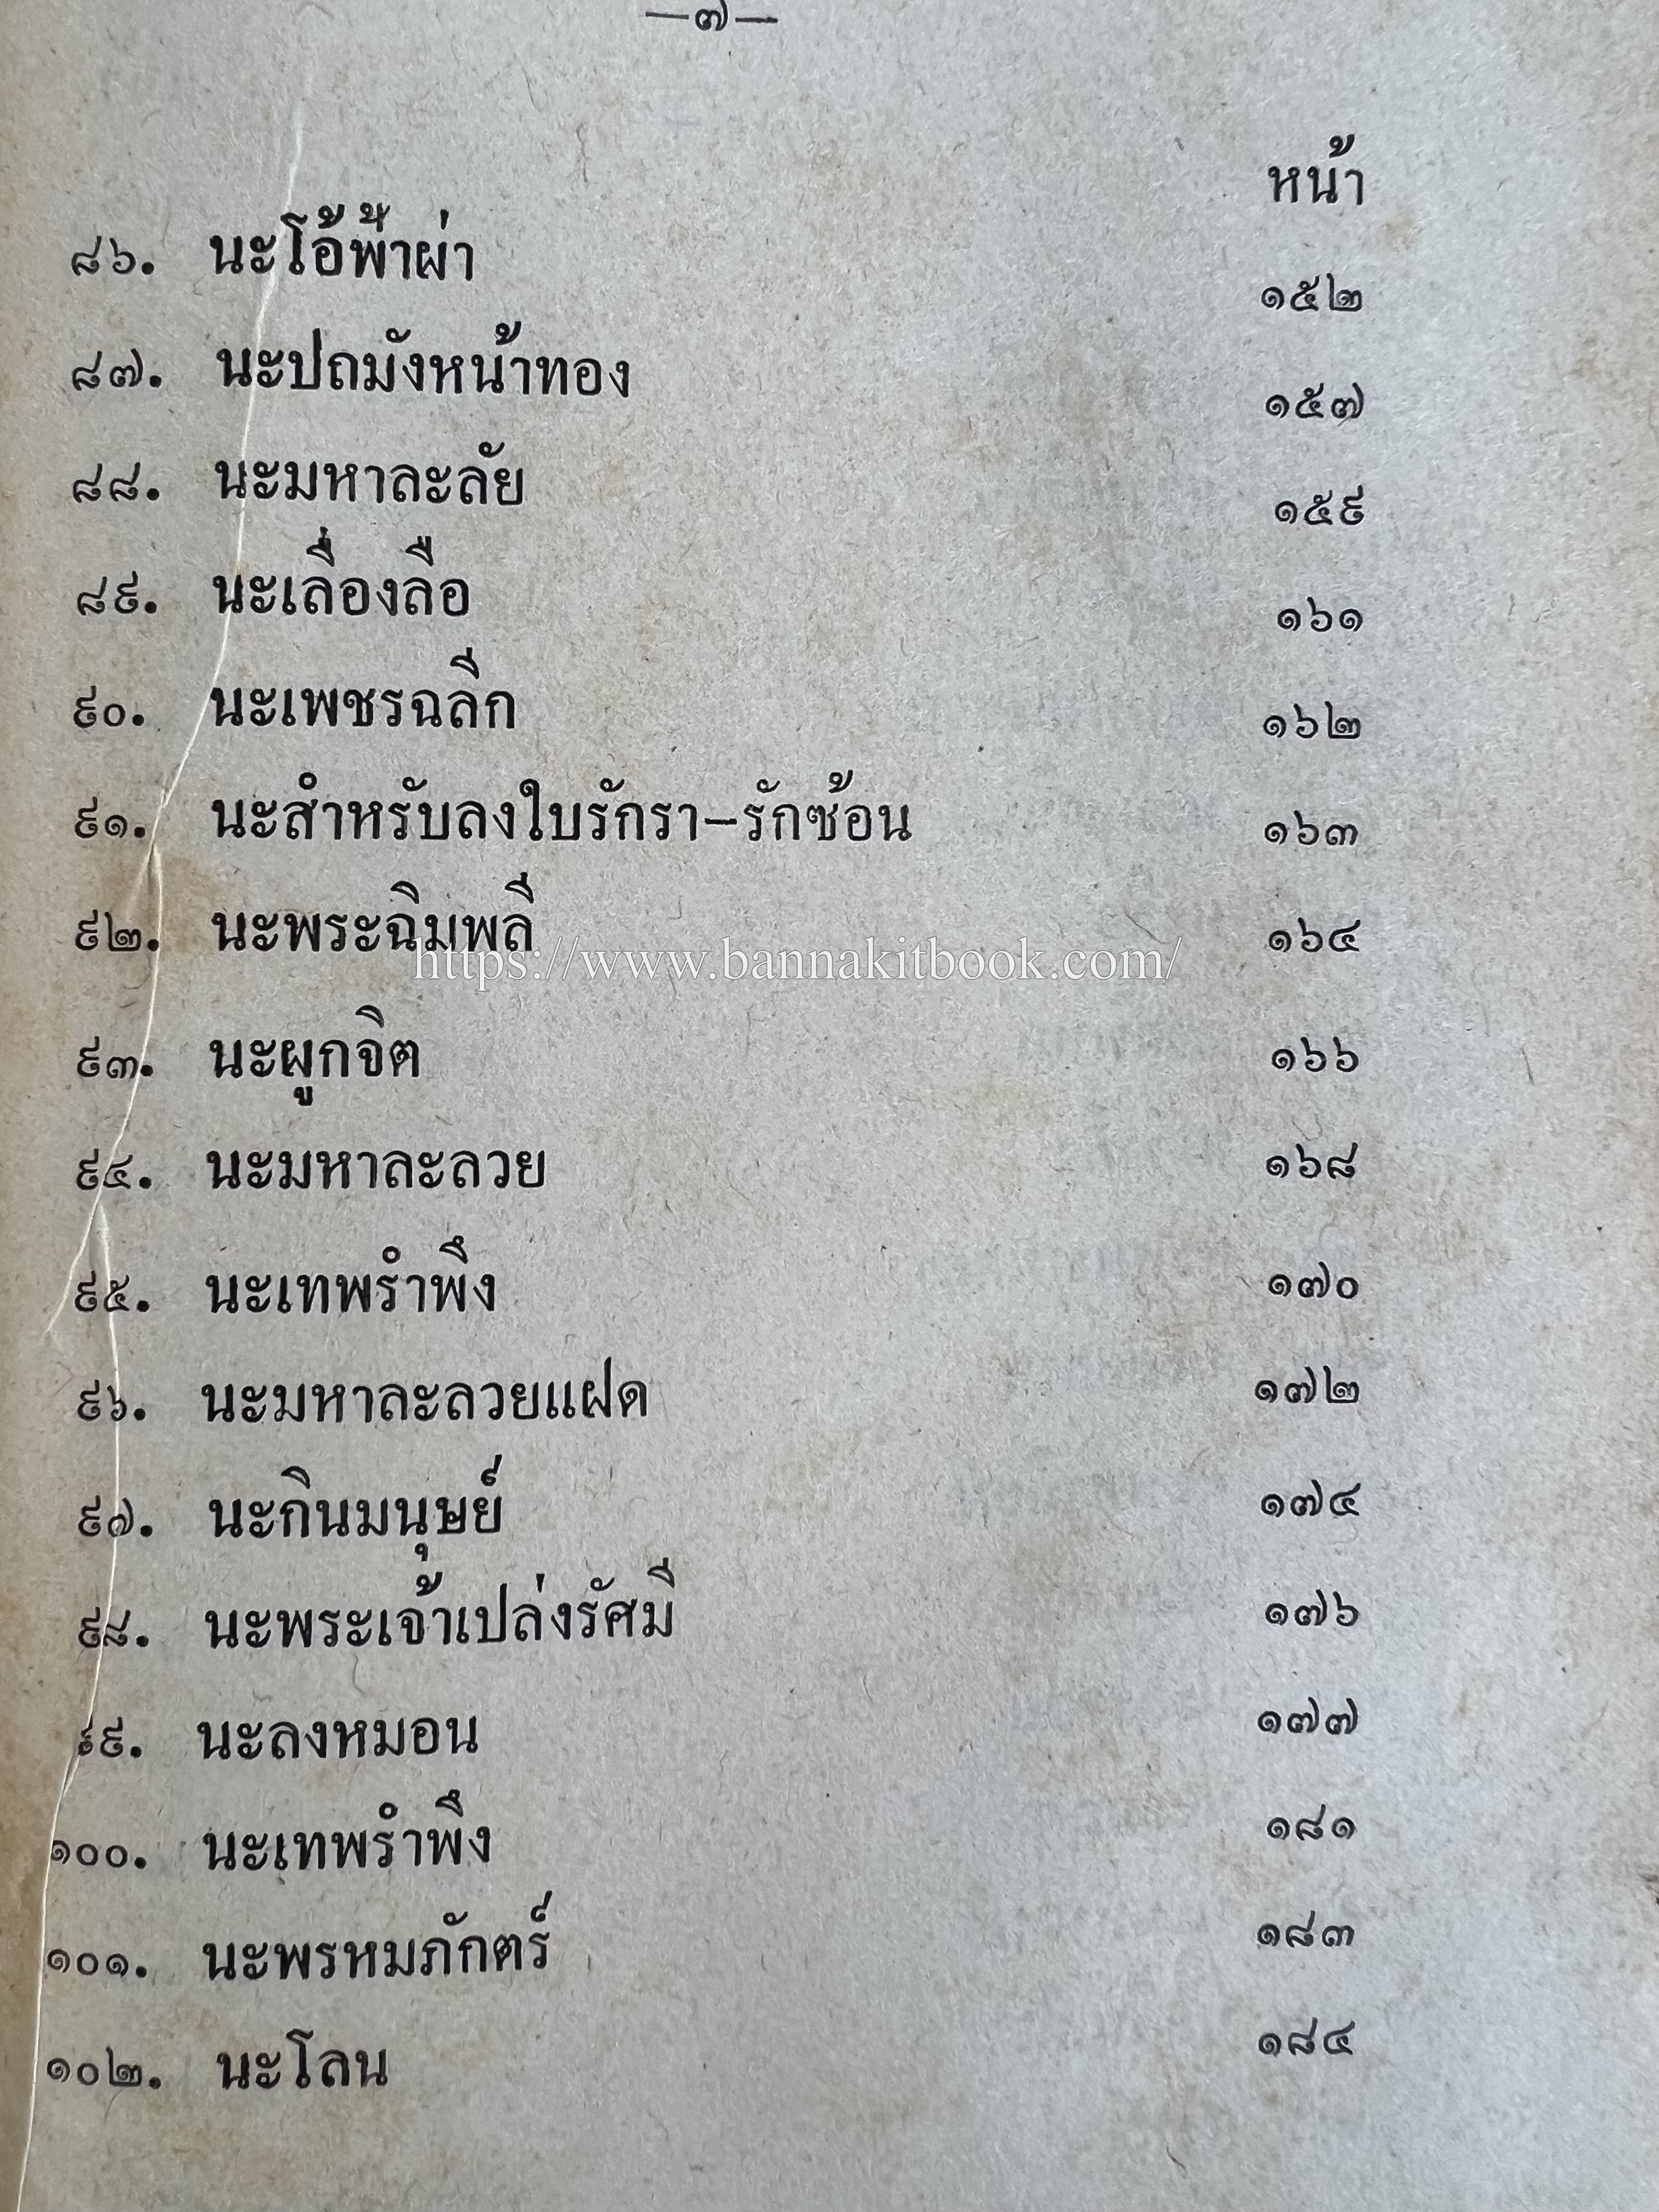 —๗—
หน้า
๘๖. นะโอ้พ้าผ่า ๑๕๒
๘๗. นะปถมังหน้าทอง ๑๕๗
๘๘. นะมหาละลัย ๑๕๙
๘๙. นะเลื่องลือ ๑๖๑
๙๐. นะเพชรฉลีก ๑๖๒
๙๑. นะสำหรับลงใบรักรา–รักซ้อน ๑๖๓
๙๒. นะพระฉิมพลี ๑๖๔
https://www.bannakitbook.com/
๙๓. นะผูกจิต ๑๖๖
๙๔. นะมหาละลวย ๑๖๘
๙๕. นะเทพรำพึง ๑๗๐
๙๖. นะมหาละลวยแฝด ๑๗๒
๙๗. นะกินมนุษย์ ๑๗๔
๙๘. นะพระเจ้าเปล่งรัศมี ๑๗๖
๙๙. นะลงหมอน ๑๗๗
๑๐๐. นะเทพรำพึง ๑๘๑
๑๐๑. นะพรหมภักตร์ ๑๘๓
๑๐๒. นะโลน ๑๘๔